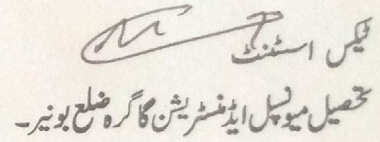 ٹیکس اسسٹنٹ
تحصیل میونسپل ایڈمنسٹریشن گاگرہ ضلع بونیر۔